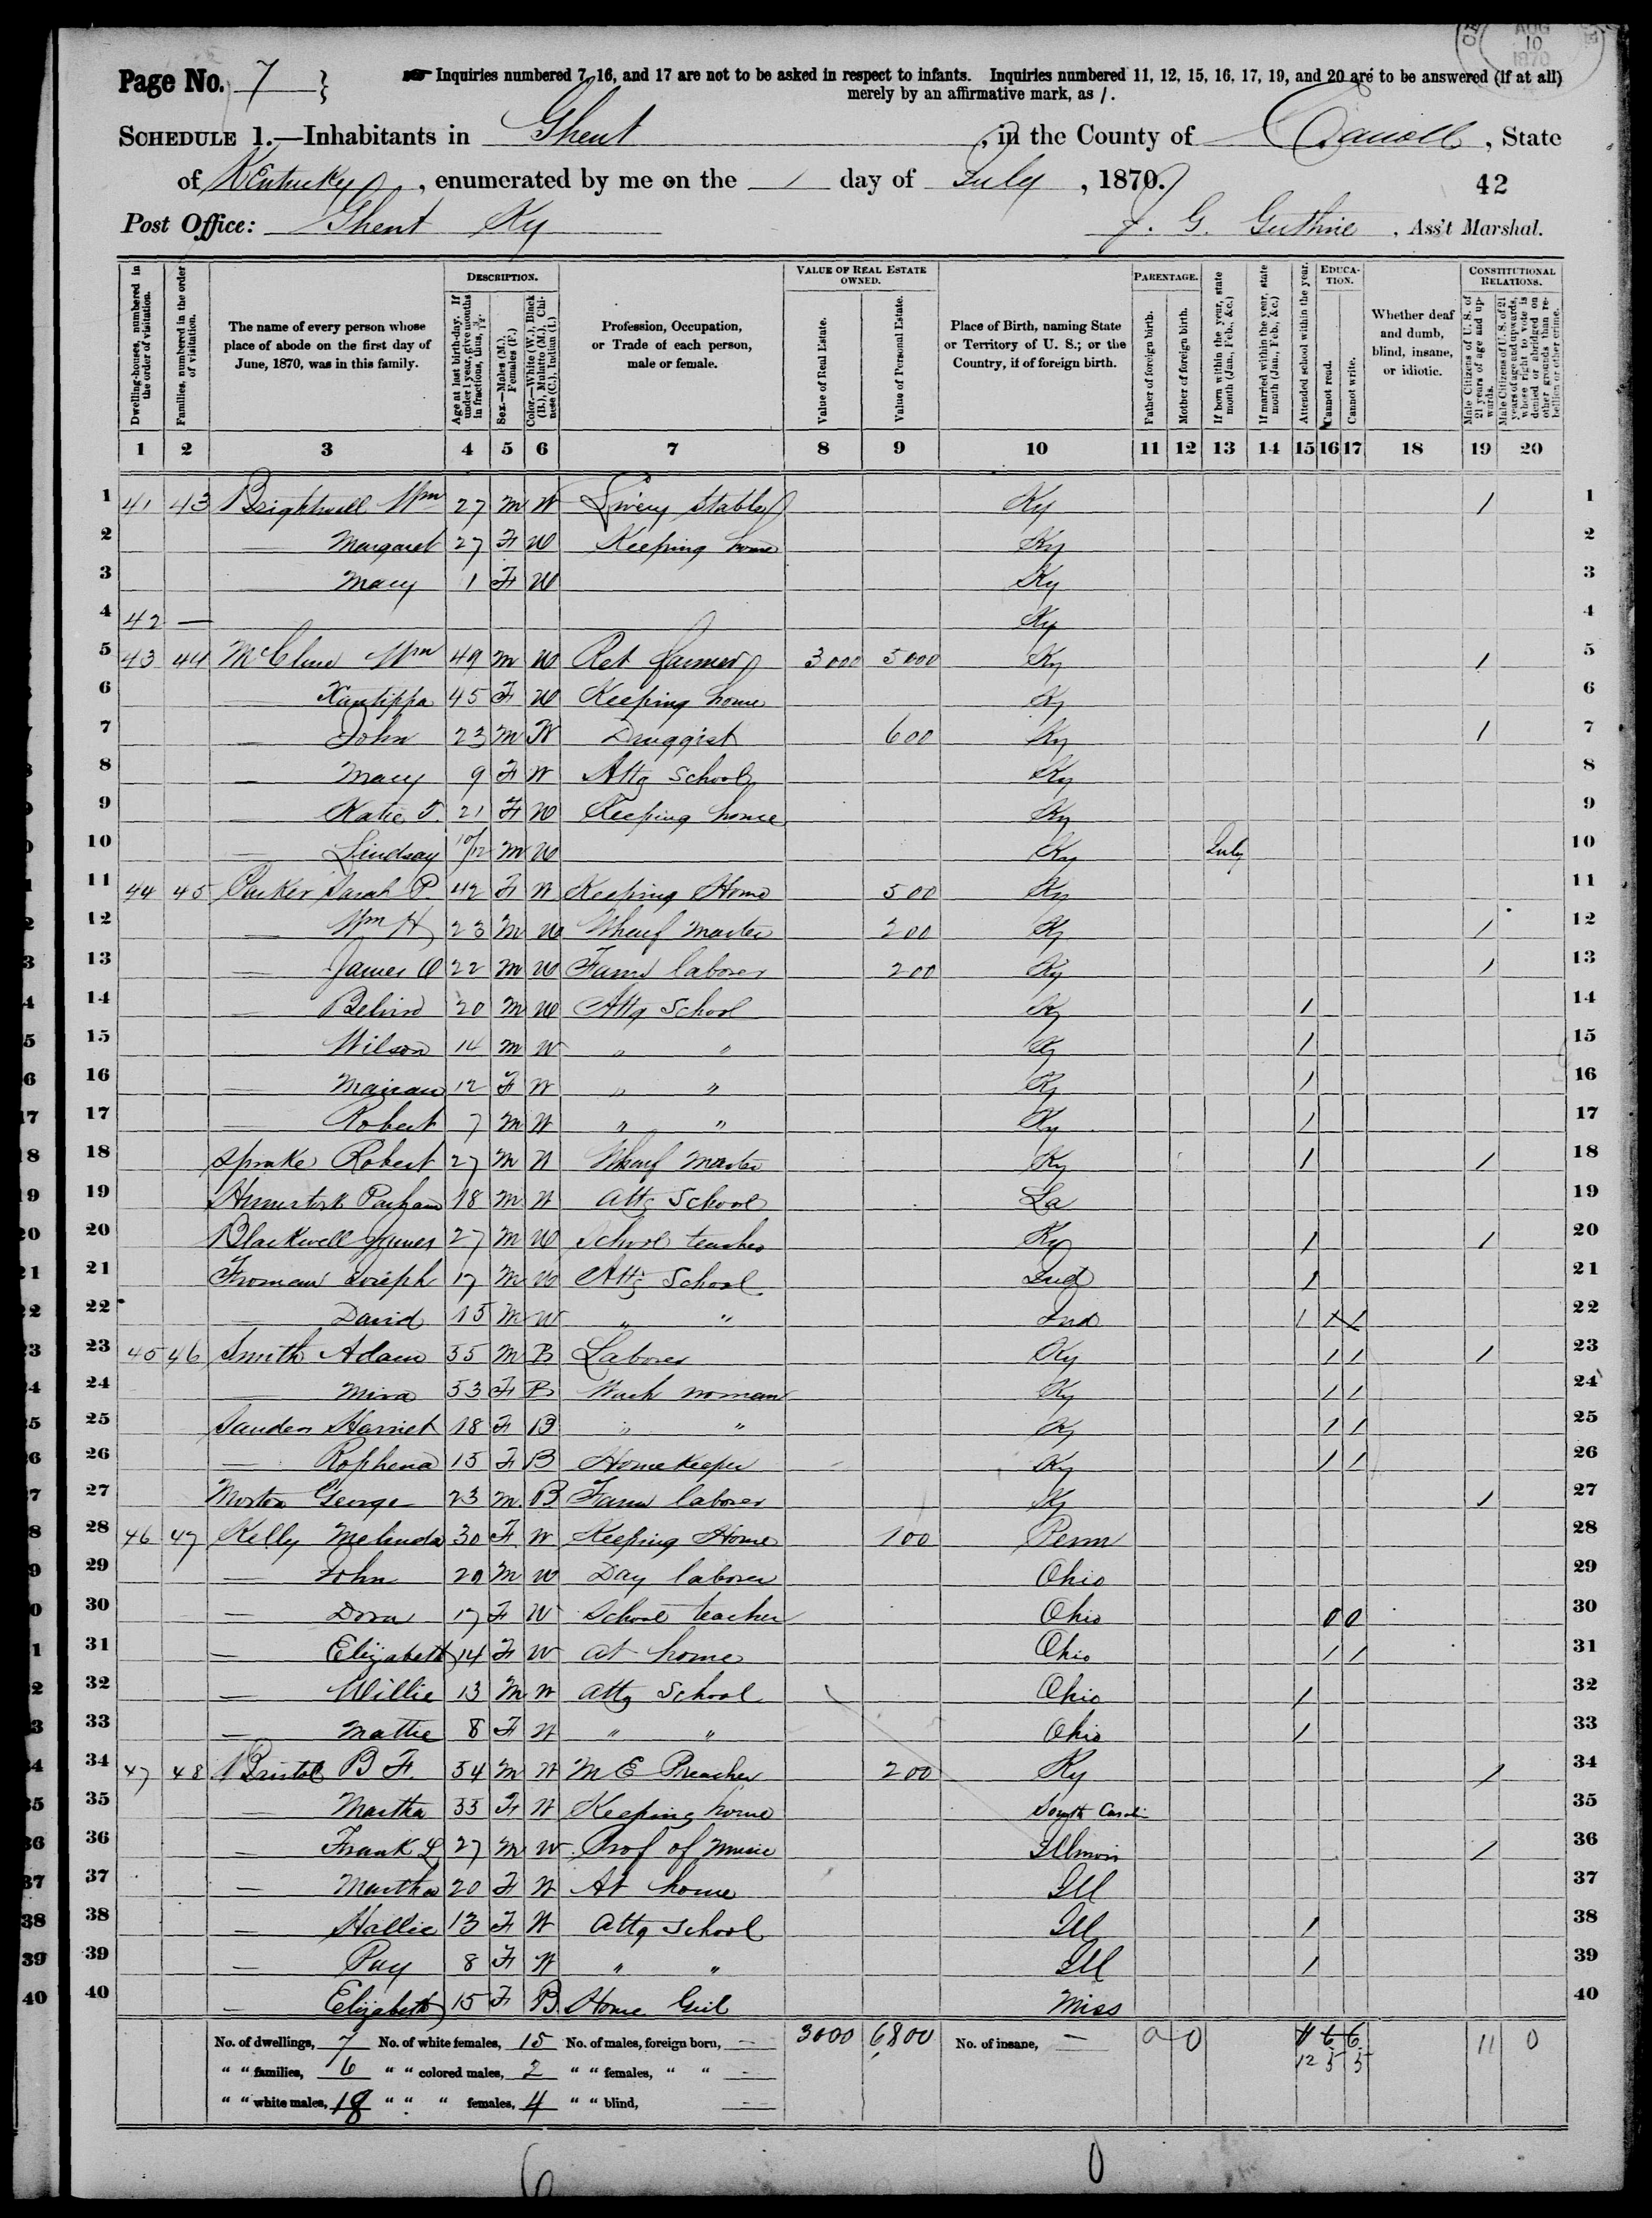 AUG
10
1870
Page No. 7
Inquiries numbered 7, 16, and 17 are not to be asked in respect to infants. Inquiries numbered 11, 12, 15, 16, 17, 19, and 20 are to be answered (if at all)
merely by an affirmative mark, as /.
SCHEDULE 1.—Inhabitants in Ghent, in the County of Carroll, State
of Kentucky, enumerated by me on the 1 day of July, 1870.
42
Post Office: Ghent Ky
J. G. Guthrie, Ass't Marshal.
Dwelling-houses, numbered in the order of visitation.
Families, numbered in the order of visitation.
The name of every person whose place of abode on the first day of June, 1870, was in this family.
DESCRIPTION.
Age at last birth-day. If under 1 year, give months in fractions, thus, 3/12.
Sex.—Males (M.), Females (F.)
Color.—White (W.), Black (B.), Mulatto (M.), Chinese (C.), Indian (I.)
Profession, Occupation, or Trade of each person, male or female.
VALUE OF REAL ESTATE OWNED.
Value of Real Estate.
Value of Personal Estate.
Place of Birth, naming State or Territory of U. S.; or the Country, if of foreign birth.
PARENTAGE.
Father of foreign birth.
Mother of foreign birth.
If born within the year, state month (Jan., Feb., &c.)
If married within the year, state month (Jan., Feb., &c.)
Attended school within the year.
EDUCATION.
Cannot read.
Cannot write.
Whether deaf and dumb, blind, insane, or idiotic.
CONSTITUTIONAL RELATIONS.
Male Citizens of U. S. of 21 years of age and upwards.
Male Citizens of U. S. of 21 years of age and upwards, whose right to vote is denied or abridged on other grounds than rebellion or other crime.
1 2 3 4 5 6 7 8 9 10 11 12 13 14 15 16 17 18 19 20
1 41 43 Brightwell Wm 27 M W Livery Stable Ky / 1
2 — Margaret 27 F W Keeping home Ky 2
3 Mary 1 F W Ky 3
4 42 — Ky 4
5 43 44 McClure Wm 49 M W Ret farmer 3000 5000 Ky / 5
6 — Xantippa 45 F W Keeping home Ky 6
7 — John 23 M W Druggist 600 Ky / 7
8 — Mary 9 F W Attg School Ky 8
9 — Katie T. 21 F W Keeping home Ky 9
10 — Lindsay 10/12 M W Ky July 10
11 44 45 Sarah P. 42 F W Keeping Home 500 Ky 11
12 — Wm H 23 M W Wharf Master 200 Ky / 12
13 — James O 22 M W Farm laborer 200 Ky / 13
14 — 20 M W Attg School Ky / 14
15 Wilson 14 M W " " Ky / 15
16 — 12 F W " " Ky / 16
17 — Robert 7 M W " " Ky / 17
18 Robert 27 M W Wharf Master Ky / / 18
19 18 M W Attg School La 19
20 Blackwell James 27 M W School teacher Ky / / 20
21 Froman Joseph 17 M W Attg School Ind / 21
22 David 15 M W " " Ind / 22
23 45 46 Smith Adam 55 M B Laborer Ky / / / 23
24 — Mira 53 F B Wash woman Ky / / 24
25 Sanders Harriet 18 F B " " Ky / / 25
26 — Rophena 15 F B Homekeeper Ky / / 26
27 Morton George 23 M B Farm laborer Ky / 27
28 46 47 Kelly Melinda 30 F W Keeping Home 100 Penn 28
29 — John 20 M W Day laborer Ohio 29
30 — Dora 17 F W School teacher Ohio 0 0 30
31 — Elizabeth 14 F W at home Ohio / / 31
32 — Willie 13 M W attg School Ohio / 32
33 — Mattie 8 F W " " Ohio / 33
34 47 48 Bristol B F. 54 M W M E Preacher 200 Ky / 34
35 — Martha 53 F W Keeping home South Caroli 35
36 — Frank L 27 M W Prof of Music Illinois / 36
37 — Martha 20 F W At home Ill 37
38 — Hallie 13 F W attg school Ill / 38
39 — Ray 8 F W " " Ill / 39
40 — Elizabeth 15 F B Home Girl Miss 40
No. of dwellings, 7 No. of white females, 15 No. of males, foreign born, — 3000 6800 No. of insane, — 0 0 11 6 6 11 0
" " families, 6 " " colored males, 2 " " females, " " — 12 5 5
" " white males, 18 " " " females, 4 " " blind, —
6 0